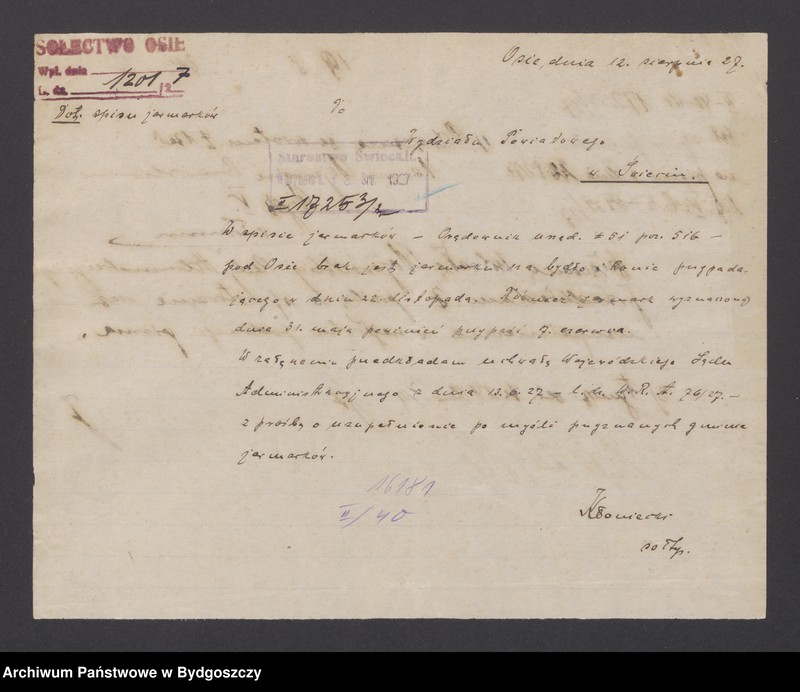 SOŁECTWO OSIE
Wpł. dnia
L. dz. 1201/27
Osie, dnia 12. sierpnia 27.
Dot. spisu jarmarków
Do
Wydziału Powiatowego
w Świeciu.
Starostwo Świeckie
II 17253/
W spisie jarmarków – Orędownik urzęd. # 51 poz. 516 –
pod Osie brak jest jarmarku na bydło i konie przypada-
jącego w dniu 22. listopada. Również jarmark wyznaczony
dnia 31. maja powinien przypaść 7. czerwca.
W załączeniu przedkładam uchwałę Wojewódzkiego Sądu
Administracyjnego z dnia 13.6.27 – L. dz. W.R.A. 76/27. –
z prośbą o uzupełnienie po myśli przyznanych gminie
jarmarków.
16181
II/40
Kłoniecki
sołtys.
Archiwum Państwowe w Bydgoszczy